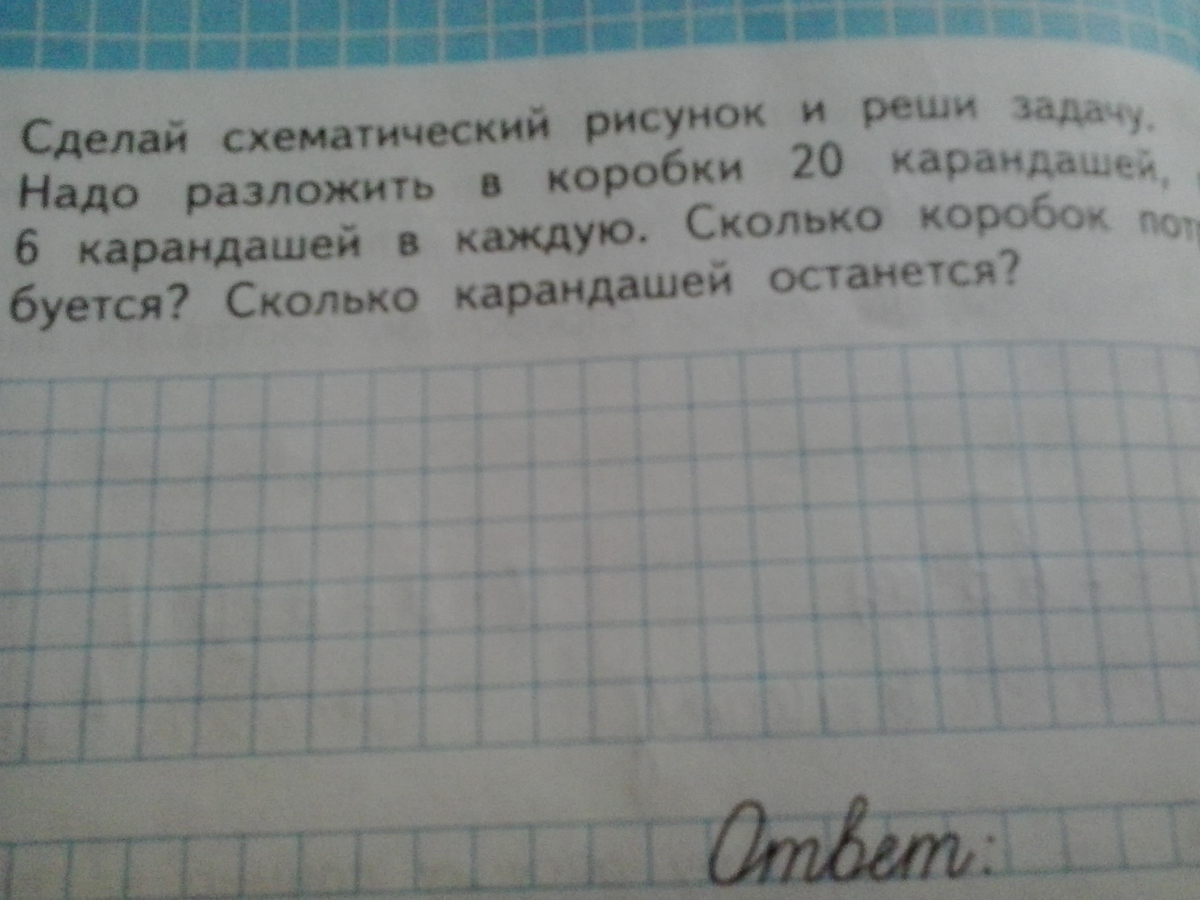 Сделай схематический рисунок и реши задачу.
Надо разложить в коробки 20 карандашей,
6 карандашей в каждую. Сколько коробок пот
буется? Сколько карандашей останется?
Ответ: